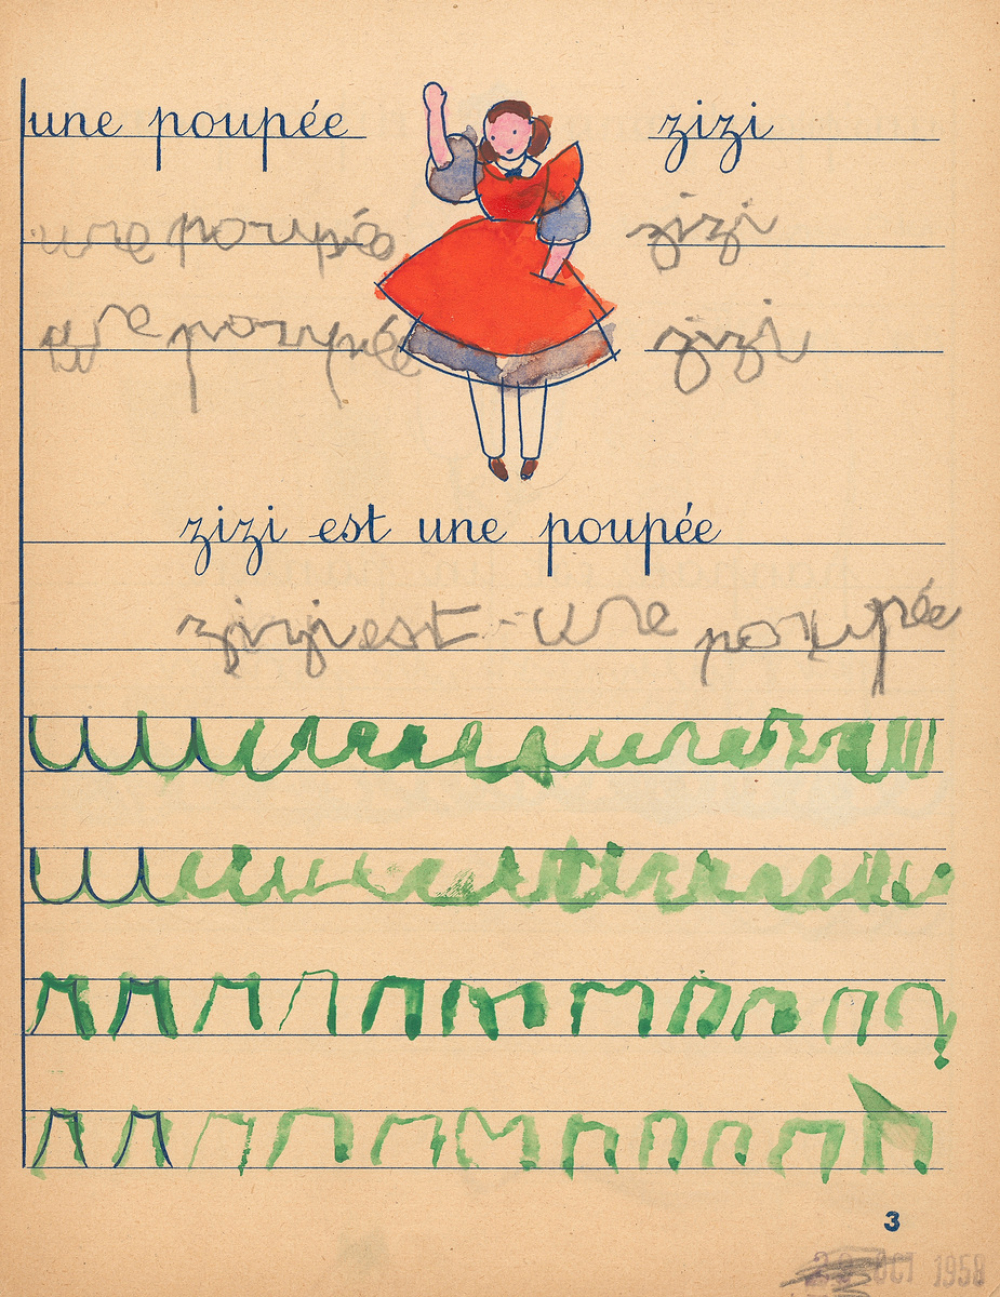 une poupée zizi
une poupée zizi
une poupée zizi
zizi est une poupée
zizi est une poupée
3
OCT 1958